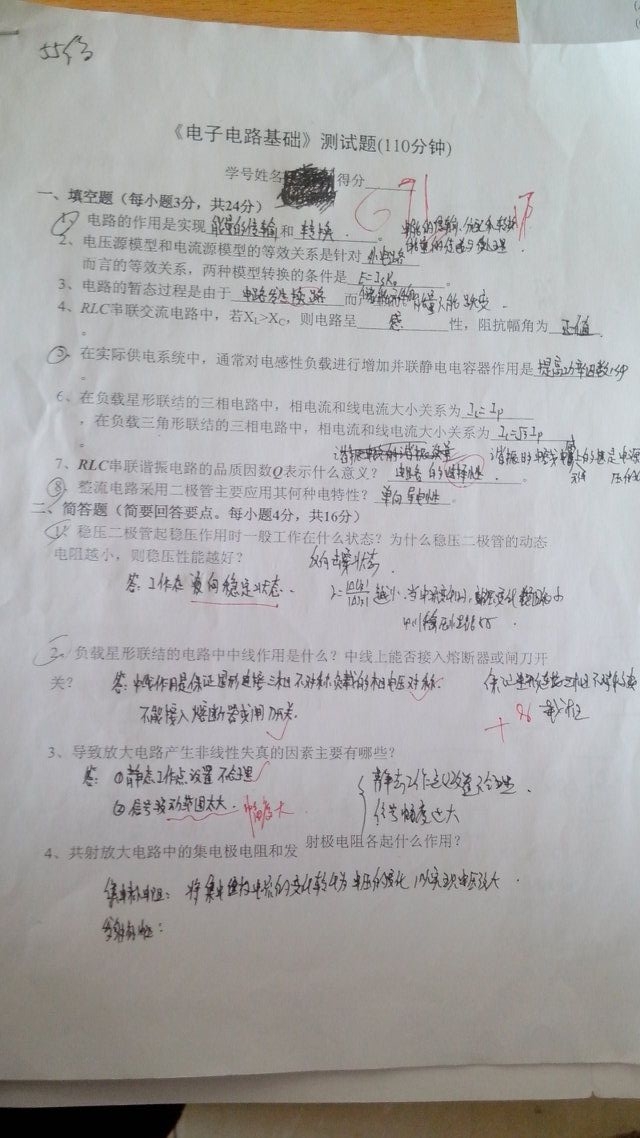 55份
《电子电路基础》测试题(110分钟)
学号姓名 得分
一、填空题（每小题3分，共24分）
1、电路的作用是实现 能量的传输 和 转换 。
2、电压源模型和电流源模型的等效关系是针对 外电路
而言的等效关系，两种模型转换的条件是 E=IsR₀ 。
3、电路的暂态过程是由于 电路发生换路 而 能量不能跃变 .
4、RLC串联交流电路中，若X_L>X_C，则电路呈 感 性，阻抗幅角为 正值
。
5、在实际供电系统中，通常对电感性负载进行增加并联静电电容器作用是 提高功率因数
6、在负载星形联结的三相电路中，相电流和线电流大小关系为 I_L=I_P
，在负载三角形联结的三相电路中，相电流和线电流大小关系为 I_L=√3I_P
7、RLC串联谐振电路的品质因数Q表示什么意义？ 的选择性 。
8、整流电路采用二极管主要应用其何种电特性？ 单向导电性 。
二、简答题（简要回答要点。每小题4分，共16分）
1、稳压二极管起稳压作用时一般工作在什么状态？为什么稳压二极管的动态
电阻越小，则稳压性能越好？ 反向击穿状态
答：工作在反向稳定状态.
2、负载星形联结的电路中中线作用是什么？中线上能否接入熔断器或闸刀开
关？ 答：中线作用是保证星形连接三相不对称负载的相电压对称.
不能接入熔断器或闸刀开关.
3、导致放大电路产生非线性失真的因素主要有哪些？
答：①静态工作点设置不合理 静态工作点设置不合理.
②信号波动范围太大. 幅度大 信号幅度过大
4、共射放大电路中的集电极电阻和发 射极电阻各起什么作用？
集电极电阻：将集电极电流的变化转化为电压的变化 以实现电压放大.
发射极电阻：